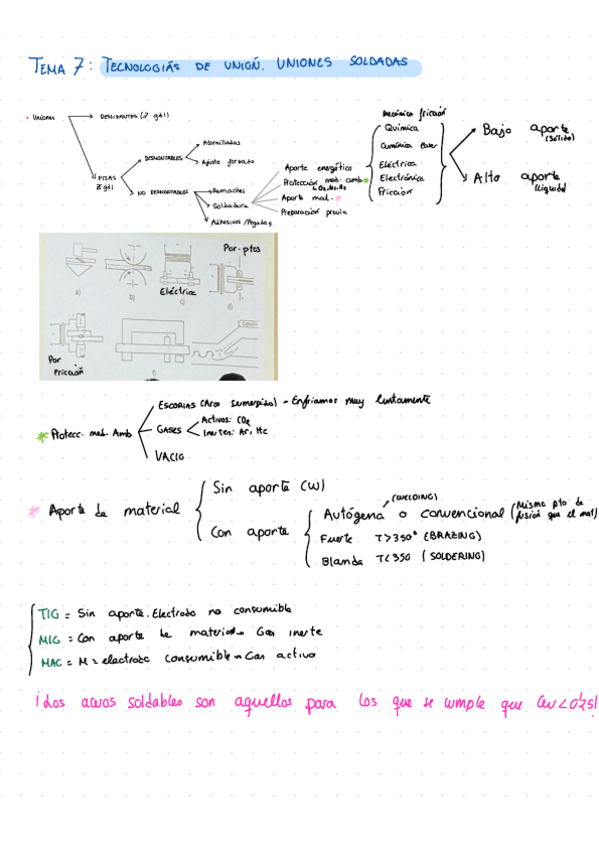 TEMA 7: TECNOLOGIÁS DE UNIÓN. UNIONES SOLDADAS
Uniones
DESLIZANTES
FIJAS
gdl
DESMONTABLES
Atornilladas
Ajuste forzado
NO DESMONTABLES
Remaches
Soldadura
Adhesivos / Pegadas
Aporte energético
Protección mat. amb
Aporte mat. *
Preparación previa
Mecánica fricción
Química
Eléctrica
Electrónica
Fricción
Bajo aporte
(Sólido)
Alto aporte
(líquido)
Por ptos
a)
b)
Eléctrica
c)
e)
Por
Fricción
f)
* Protecc. mat. Amb
ESCORIAS (Arco sumergido) - Enfriamos muy lentamente
GASES
Activos: CO2
Inertes: Ar, He
VACIO
* Aporte de material
Sin aporte (W)
Con aporte
(WELDING)
Autógena o convencional (Mismo pto de
fusión que el mat)
Fuerte T>350° (BRAZING)
Blanda T<350 (SOLDERING)
TIG = Sin aporte. Electrodo no consumible
MIG = Con aporte de material → Gas inerte
MAC = M = electrodo consumible → Gas activo
¡Los aceros soldables son aquellos para los que se cumple que Cev<0'25!